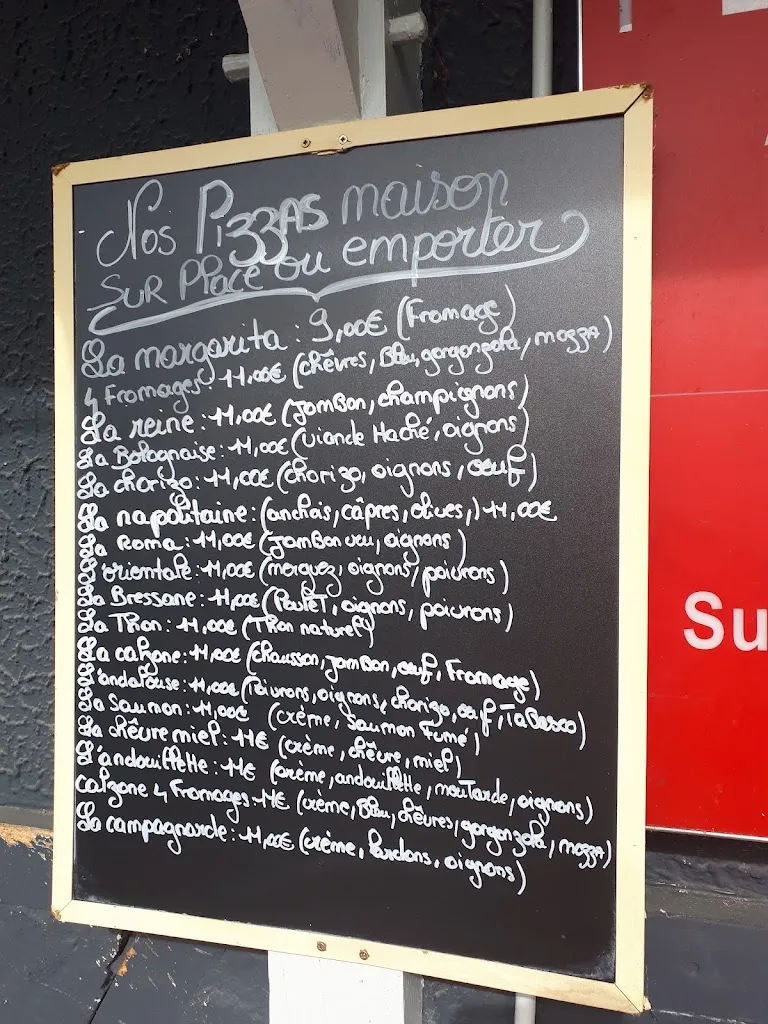 Nos Pizzas maison
SUR Place ou emporter
La margarita : 9,00€ (Fromage)
4 Fromages 11,00€ (chêvres, Bleu, gorgonzola, mozza)
La reine : 11,00€ (JamBon, champignons)
La Bolognaise : 11,00€ (viande Haché, oignons)
La chorizo : 11,00€ (chorizo, oignons, oeuf)
La napolitaine : (anchois, câpres, olives,) 11,00€
La Roma : 11,00€ (JamBon cru, oignons)
L'orientale : 11,00€ (merguez, oignons, poivrons)
La Bressane : 11,00€ (PouleT, oignons, poivrons)
La Thon : 11,00€ (Thon naturel)
La calzone : 11,00€ (chausson, jamBon, oeuf, Fromage)
L'andalouse : 11,00€ (Poivrons, oignons, chorizo, oeuf, TaBasco)
La Saumon : 11,00€ (crème, Saumon Fumé)
La chêvre miel : 11€ (crème, chêvre, miel)
L'andouillette : 11€ (crème, andouillette, mouTarde, oignons)
calzone 4 Fromages 11€ (crème, Bleu, chêvres, gorgonzola, mozza)
La campagnarde : 11,00€ (crème, lardons, oignons)
Su